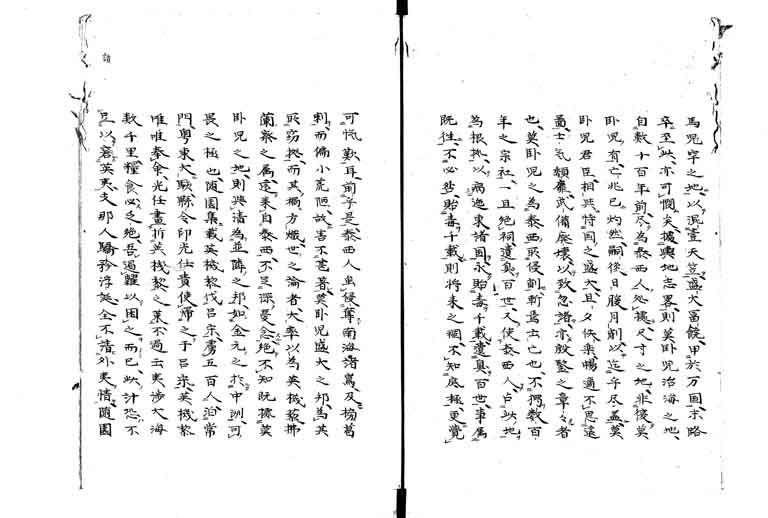 馬兒罕之地、以混壹天竺、盛大富饒、甲於万国、末路
卒至此、亦可憫矣、據輿地志畧、則莫臥兒沿海之地、
自数十百年前、尽為泰西人処攘、尺寸之地、非復莫
臥兒有、亡兆已灼然、嗣後日朘月削、以迄乎尽、盖莫
臥兒君臣、相与恃国之盛大、且夕佚楽暢適、不思遠
啚、士気頽靡、武備廃壊、以致忽諸、亦殷鍳之章々者
也、莫臥兒之為泰西所侵、創斬焉亡也、不独数百
年之宗社、一旦絶祠、遺臭百世、又使泰西人占此地
為根拠、以病逸東諸国、永貽毒千載、遺臭百世、事属
既往、不必咎、貽毒千載、則将来之禍、不知底極、更覚
可慌歎耳、前乎是泰西人虫侵奪南海諸島、及榜葛
剌、而偏小荒陋、故害不甚著、莫臥兒盛大之邦、為其
所窃拠、而其禍方熾、世之論者、大率以為英機黎拂
蘭察之属、遠来自泰西、不足深憂念、絶不知既據莫
臥兒之地、則与清為並隣之邦、如金元之於中訓、可
畏之極也、随園集載、英機黎伐呂宋、虜五百人、泊常
門、粤東大駭、縣令印光任責使帰之于呂宋、英機黎
唯唯奉命、光任画折英機黎之策、不過云夷渉大海
数千里、糧食必乏絶、吾遏糴以困之而已、此汁恐不
足以窘英夷、支那人驕矜浮誕、全不諳外夷情、随園